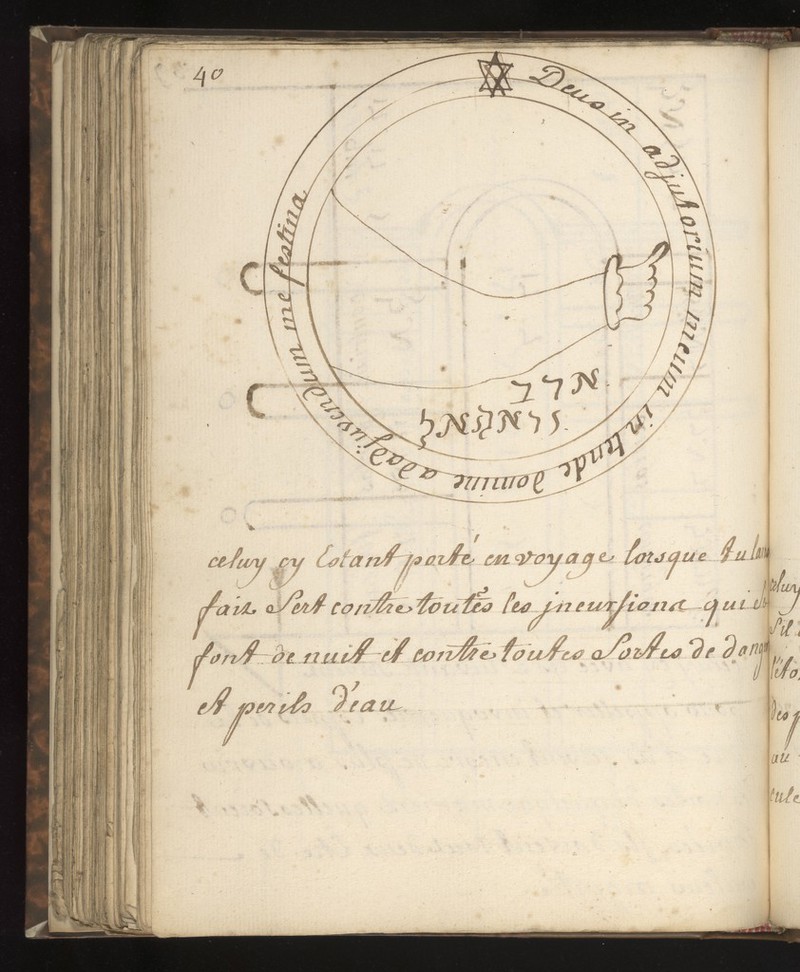 40
Deus in adjutorium meum intende domine adadjuvendum me festina
ארב
celuy cy Estant porté en voyage lorsque tu
fait Sert contre toutes les jncursions qui
font de nuit et contre toutes Sortes de
et perils d'eau
celuy